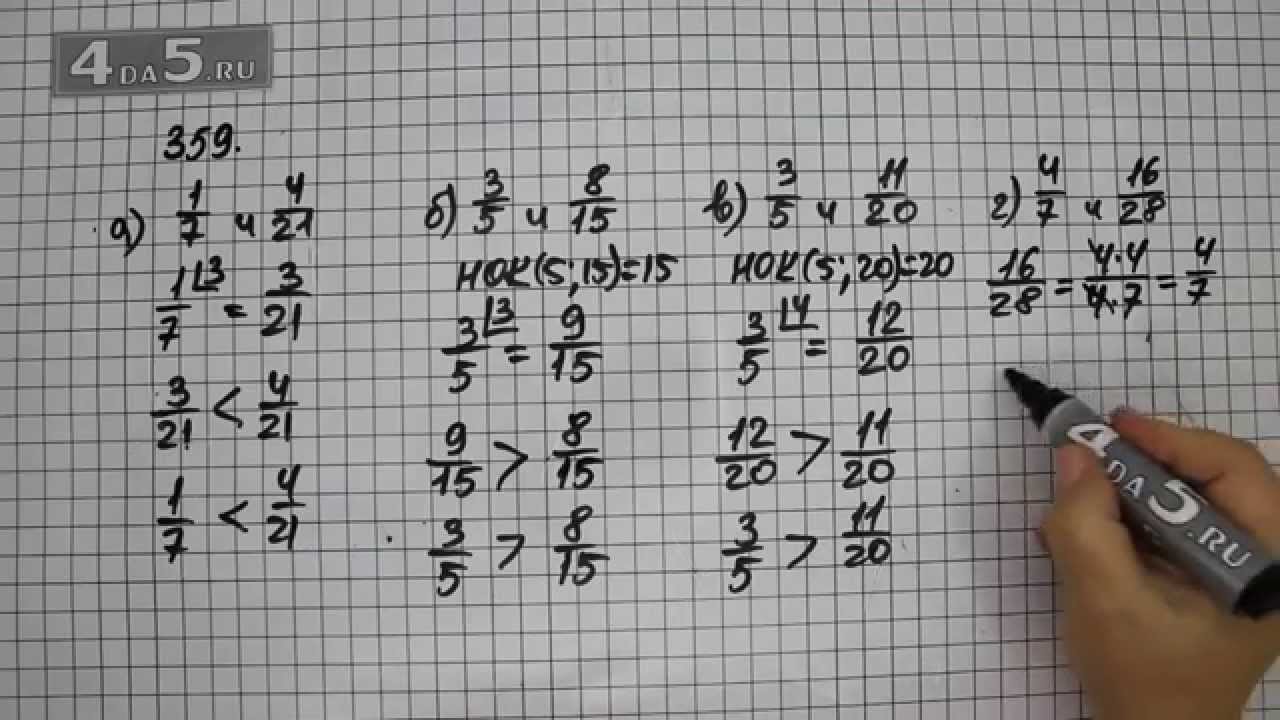 4DA5.RU
359.
а) 1/7 и 4/21
1/7 ⌊3 = 3/21
3/21 < 4/21
1/7 < 4/21
б) 3/5 и 8/15
НОК(5;15)=15
3/5 ⌊3 = 9/15
9/15 > 8/15
3/5 > 8/15
в) 3/5 и 11/20
НОК(5;20)=20
3/5 ⌊4 = 12/20
12/20 > 11/20
3/5 > 11/20
г) 4/7 и 16/28
16/28 = 4·4/4·7 = 4/7
4DA5.RU